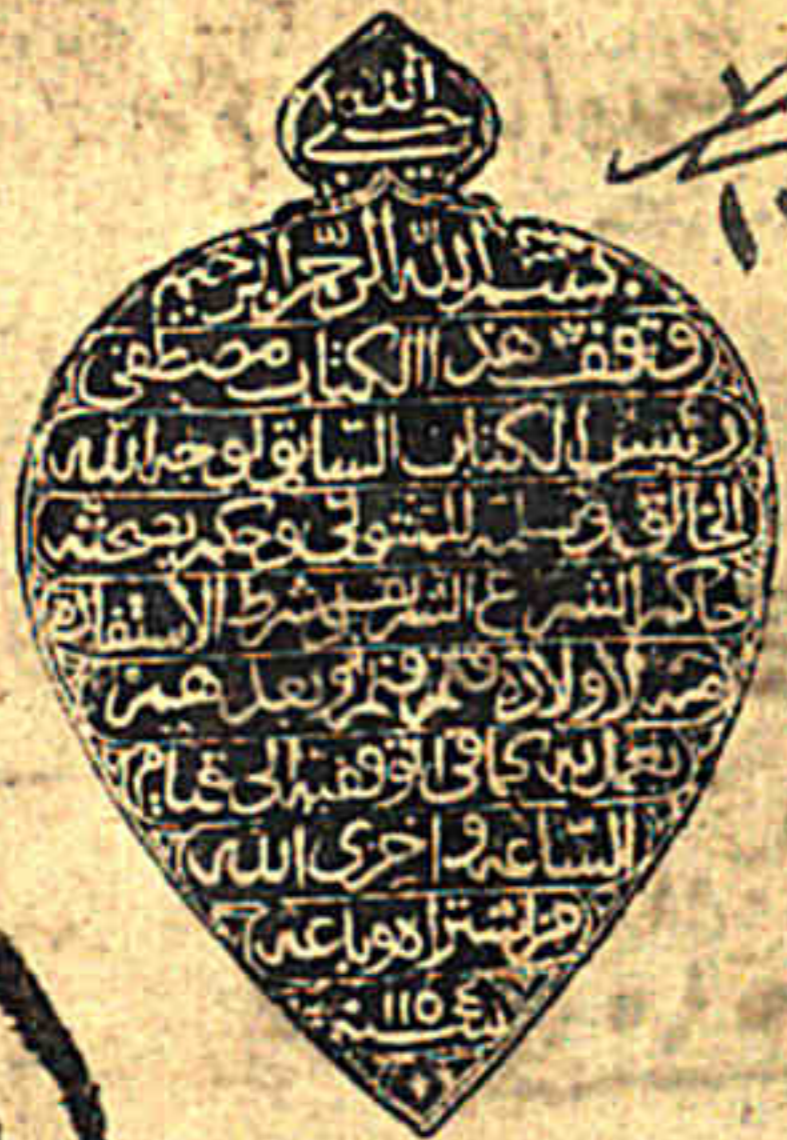 حسبي الله
بسم الله الرحمن الرحيم
وقف هذا الكتاب مصطفى
رئيس الكتاب السابق لوجه الله
الخالق وسلمه للمتولي وحكم بصحته
حاكم الشرع الشريف وشرط الاستفادة
منه لاولاده ثم وثم وبعدهم
يعمل به كما في الوقفية الى قيام
الساعة واخزى الله
من اشتراه وباعه
سنة ١١٥٤